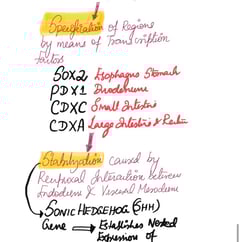 Specification of Regions
by means of Transcription
factors
SOX2 Esophagus Stomach
PDX1 Duodenum
CDXC Small Intestine
CDXA Large Intestine & Rectum
Stabilization caused by
Reciprocal Interaction between
Endoderm & Visceral Mesoderm
SONIC HEDGEHOG (SHH)
Gene → Establishes Nested
Expression of